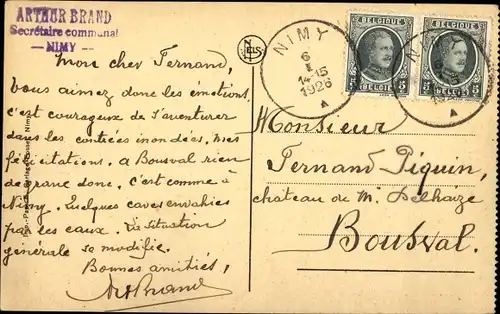 ARTHUR BRAND
Secrétaire communal
— NIMY —
Mon cher Fernand,
Vous aimez donc les émotions,
c'est courageux de s'aventurer
dans les contrées inondées. Mes
félicitations. A Bousval rien
de grave donc. C'est comme à
Nimy. Quelques caves envahies
par les eaux. La situation
générale se modifie.
Bonnes amitiés,
NELS
NIMY
6
I
14-15
1926
BELGIQUE
5 5
BELGIQUE
5 5
Monsieur
Fernand Piquin,
château de M. Delhaize
Bousval.